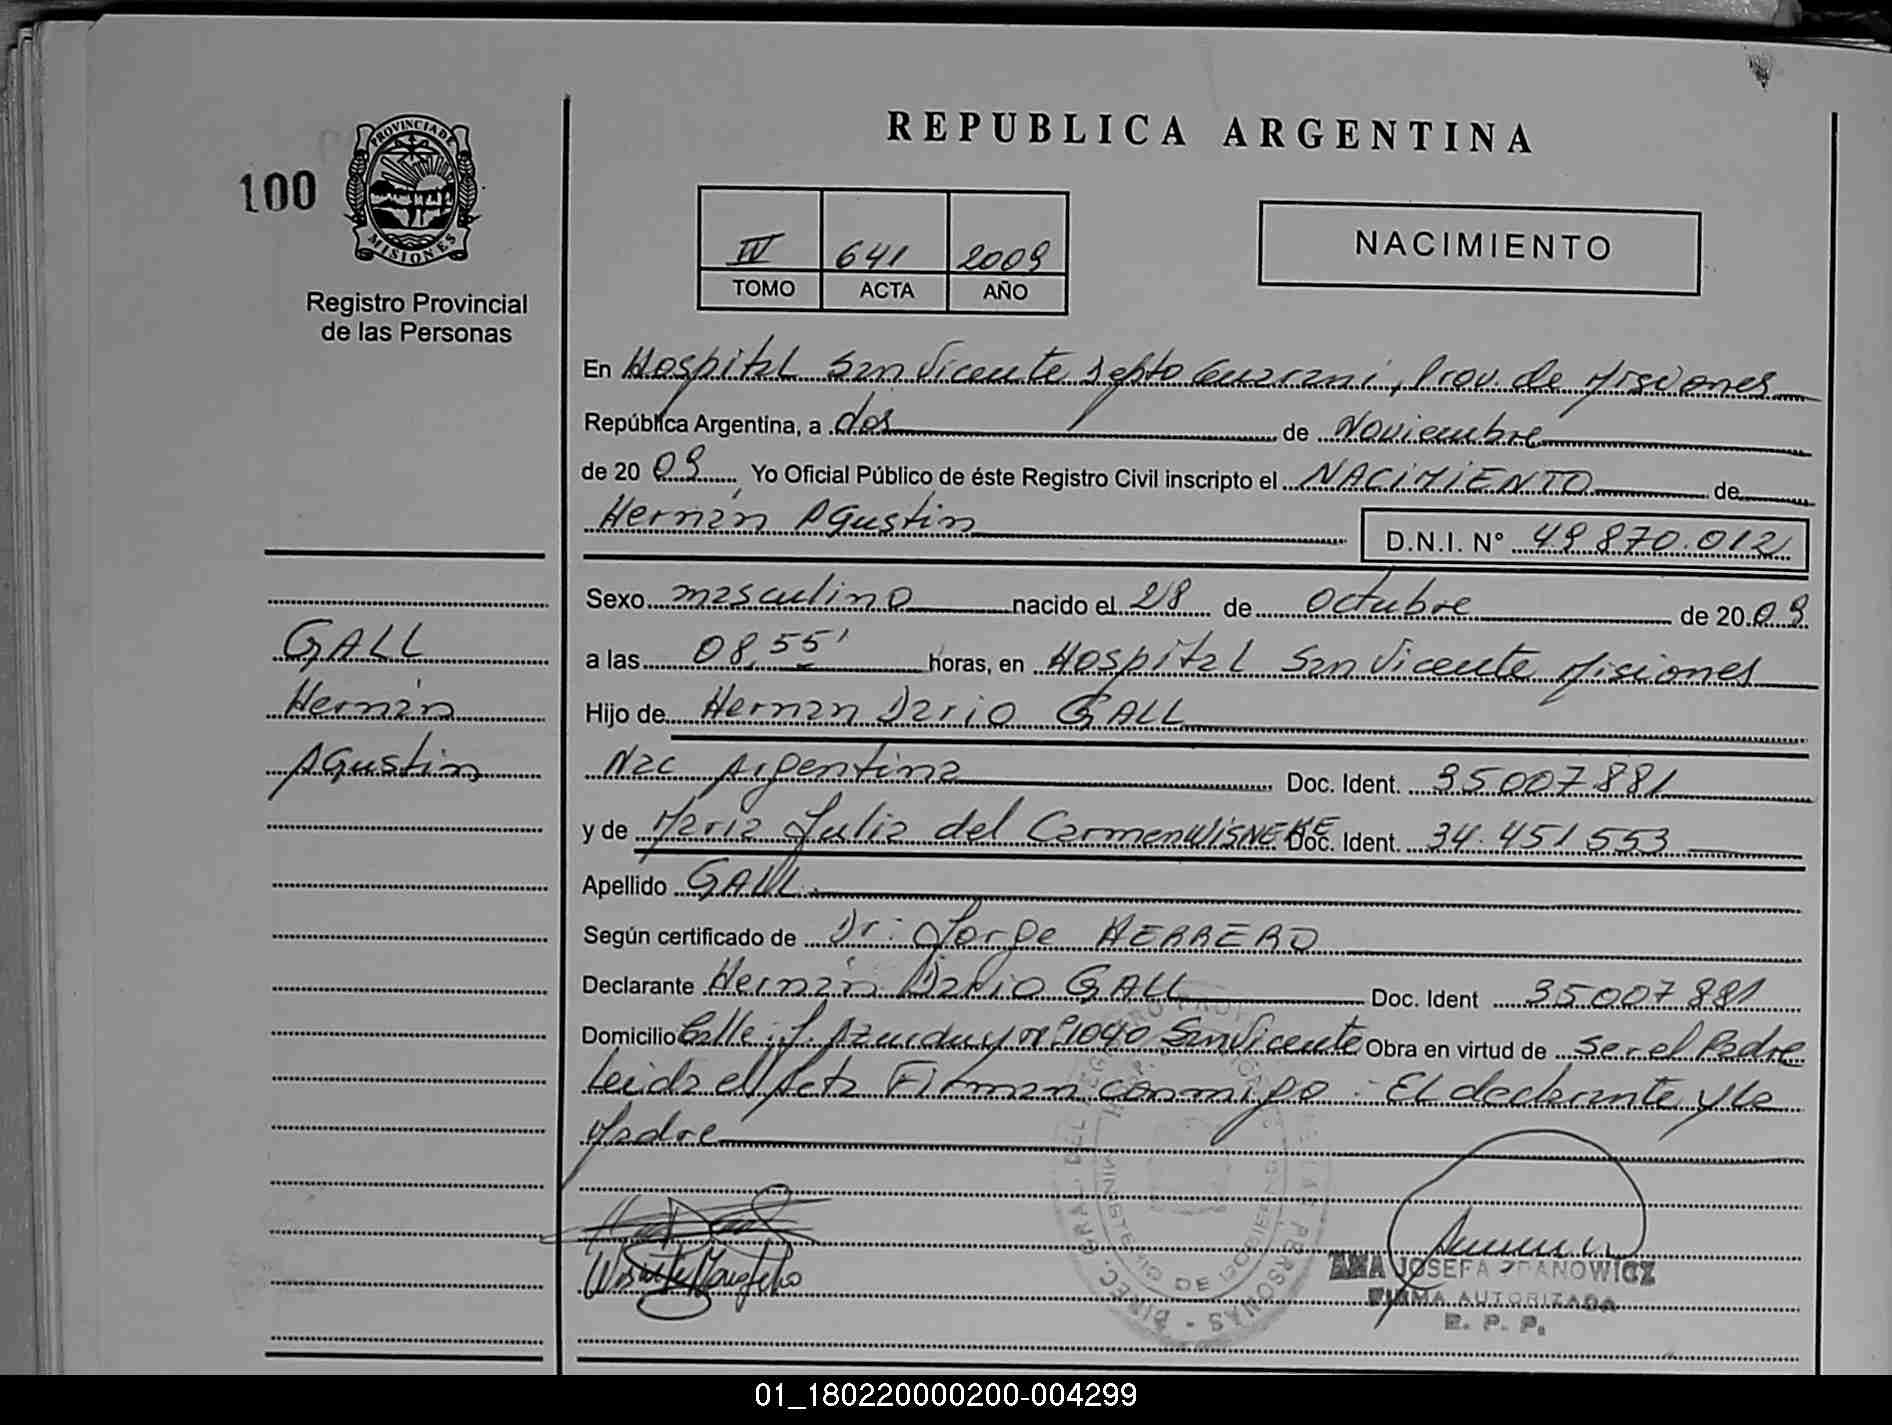 REPUBLICA ARGENTINA
100
PROVINCIA DE
MISIONES
Registro Provincial
de las Personas
IV 641 2009
TOMO ACTA AÑO
NACIMIENTO
En Hospital San Vicente Depto Guarani, Prov. de Misiones
República Argentina, a dos de Noviembre
de 20 09, Yo Oficial Público de éste Registro Civil inscripto el NACIMIENTO de
Hernán Agustin D.N.I. N° 49 870.012
Sexo masculino nacido el 28 de Octubre de 20 09
a las 08,55' horas, en Hospital San Vicente Misiones
Hijo de Hernan Dario GALL
Nac Argentina Doc. Ident. 35007881
y de Maria Julia del Carmen WISNEKE Doc. Ident. 34.451553
Apellido GALL
Según certificado de Dr: Jorge HERRERO
Declarante Hernán Dario GALL Doc. Ident 35007881
Domicilio Calle: J. Azurduy nº 1040 San Vicente Obra en virtud de ser el Padre
Leida el Acta Firman conmigo: El declarante y la
Madre
GALL
Hernán
Agustin
ANA JOSEFA ZDANOWICZ
FIRMA AUTORIZADA
R. P. P.
DIREC. GRAL. DEL PERSONAS
MINISTERIO DE GOBIERNO
01_180220000200-004299